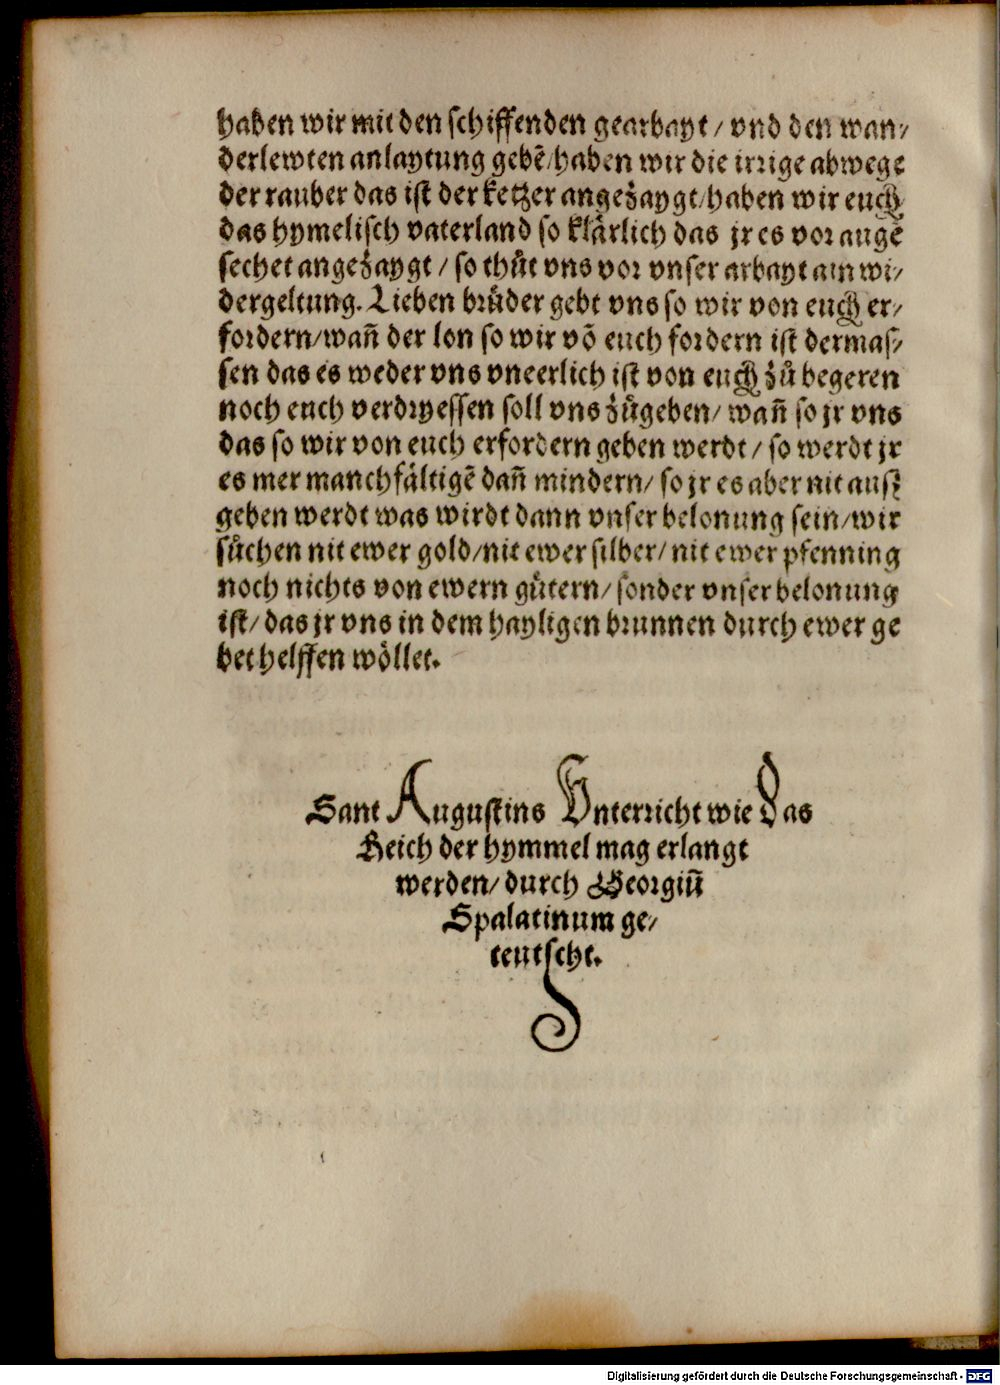 haben wir mit den schiffenden gearbayt / vnd den wan/
derlewten anlaytung gebẽ/haben wir die irrige abwege
der rauber das ist der ketzer angezaygt/haben wir euch
das hymelisch vaterland so klärlich das jr es vor augẽ
sechet angezaygt / so thůt vns vor vnser arbayt ain wi/
dergeltung. Lieben brůder gebt vns so wir von euch er/
fordern/wañ der lon so wir võ euch fordern ist dermas/
sen das es weder vns vneerlich ist von euch zů begeren
noch euch verdryessen soll vns zůgeben/ wañ so jr vns
das so wir von euch erfordern geben werdt / so werdt jr
es mer manchfältigẽ dañ mindern/ so jr es aber nit ausz
geben werdt was wirdt dann vnser belonung sein/wir
sůchen nit ewer gold/nit ewer silber/ nit ewer pfenning
noch nichts von ewern gůtern/ sonder vnser belonung
ist/ das jr vns in dem hayligen brunnen durch ewer ge
bet helffen wöllet.
Sant Augustins Vnterricht wie Das
Reich der hymmel mag erlangt
werden/ durch Georgiũ
Spalatinum ge/
teutscht.
Digitalisierung gefördert durch die Deutsche Forschungsgemeinschaft - DFG